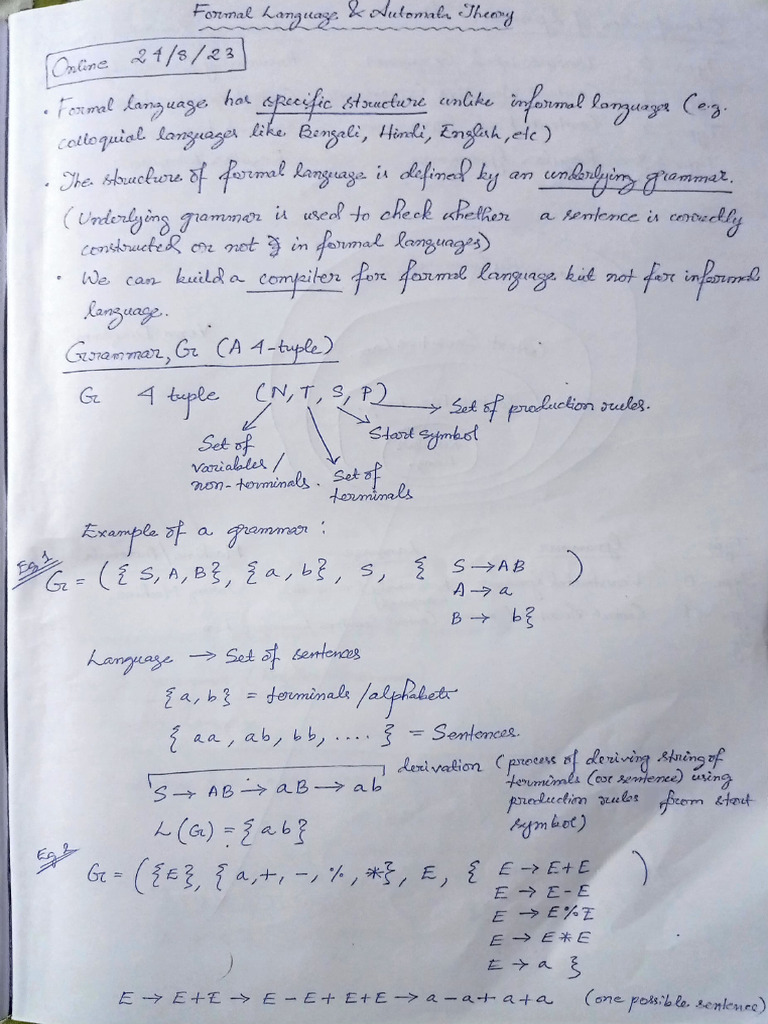 Formal Language & Automata Theory
Online 24/8/23
• Formal language has specific structure unlike informal languages (e.g.
colloquial languages like Bengali, Hindi, English, etc)
• The structure of formal language is defined by an underlying grammar.
(Underlying grammar is used to check whether a sentence is correctly
constructed or not in formal languages)
• We can build a compiler for formal language but not for informal
language.
Grammar, G (A 4-tuple)
G 4 tuple (N, T, S, P) → Set of production rules.
Start symbol
Set of
variables/
non-terminals.
Set of
terminals
Example of a grammar:
Eg 1
G = ({S, A, B}, {a, b}, S, { S → AB )
A → a
B → b}
Language → Set of sentences
{a, b} = terminals/alphabets
{aa, ab, bb, ....} = Sentences.
S → AB → aB → ab
derivation (process of deriving string of
terminals (or sentence) using
production rules from start
symbol)
L(G) = {ab}
Eg 2
G = ({E}, {a, +, -, %, *}, E, { E → E+E )
E → E-E
E → E%E
E → E*E
E → a }
E → E+E → E - E + E + E → a - a + a + a (one possible sentence)